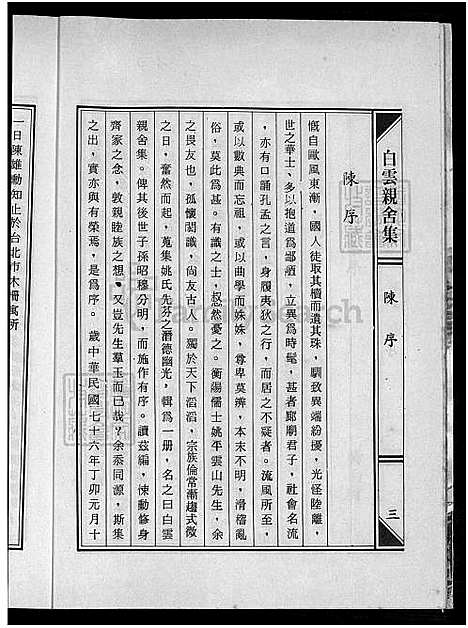 白雲親舍集
陳序
三
陳序
慨自歐風東漸，國人徒取其櫝而遺其珠，馴致異端紛擾，光怪陸離，
世之華士、多以抱道為鄙陋，立異為時髦，甚者鄉閭君子，社會名流
，亦有口誦孔孟之言，身履夷狄之行，而居之不疑者。流風所至，
或以數典而忘祖，或以曲學而姝姝，尊卑莫辨，本末不明，滑稽亂
俗，莫此為甚。有識之士，惄然憂之。衡陽儒士姚平雲山先生，余
之畏友也，孤懷閎識，尚友古人。獨於天下滔滔，宗族倫常漸趨式微
之日，奮然而起，蒐集姚氏先芬之潛德幽光，輯為一册，名之曰白雲
親舍集。俾其後世子孫昭穆分明，而施作有序。讀茲編，悚動修身
齊家之念，敦親睦族之想，又豈先生羣玉而已哉？余忝同源，斯集
之出，實亦與有榮焉，是為序。 歲中華民國七十六年丁卯元月十
一日陳雄勳知止於台北市木柵寓所